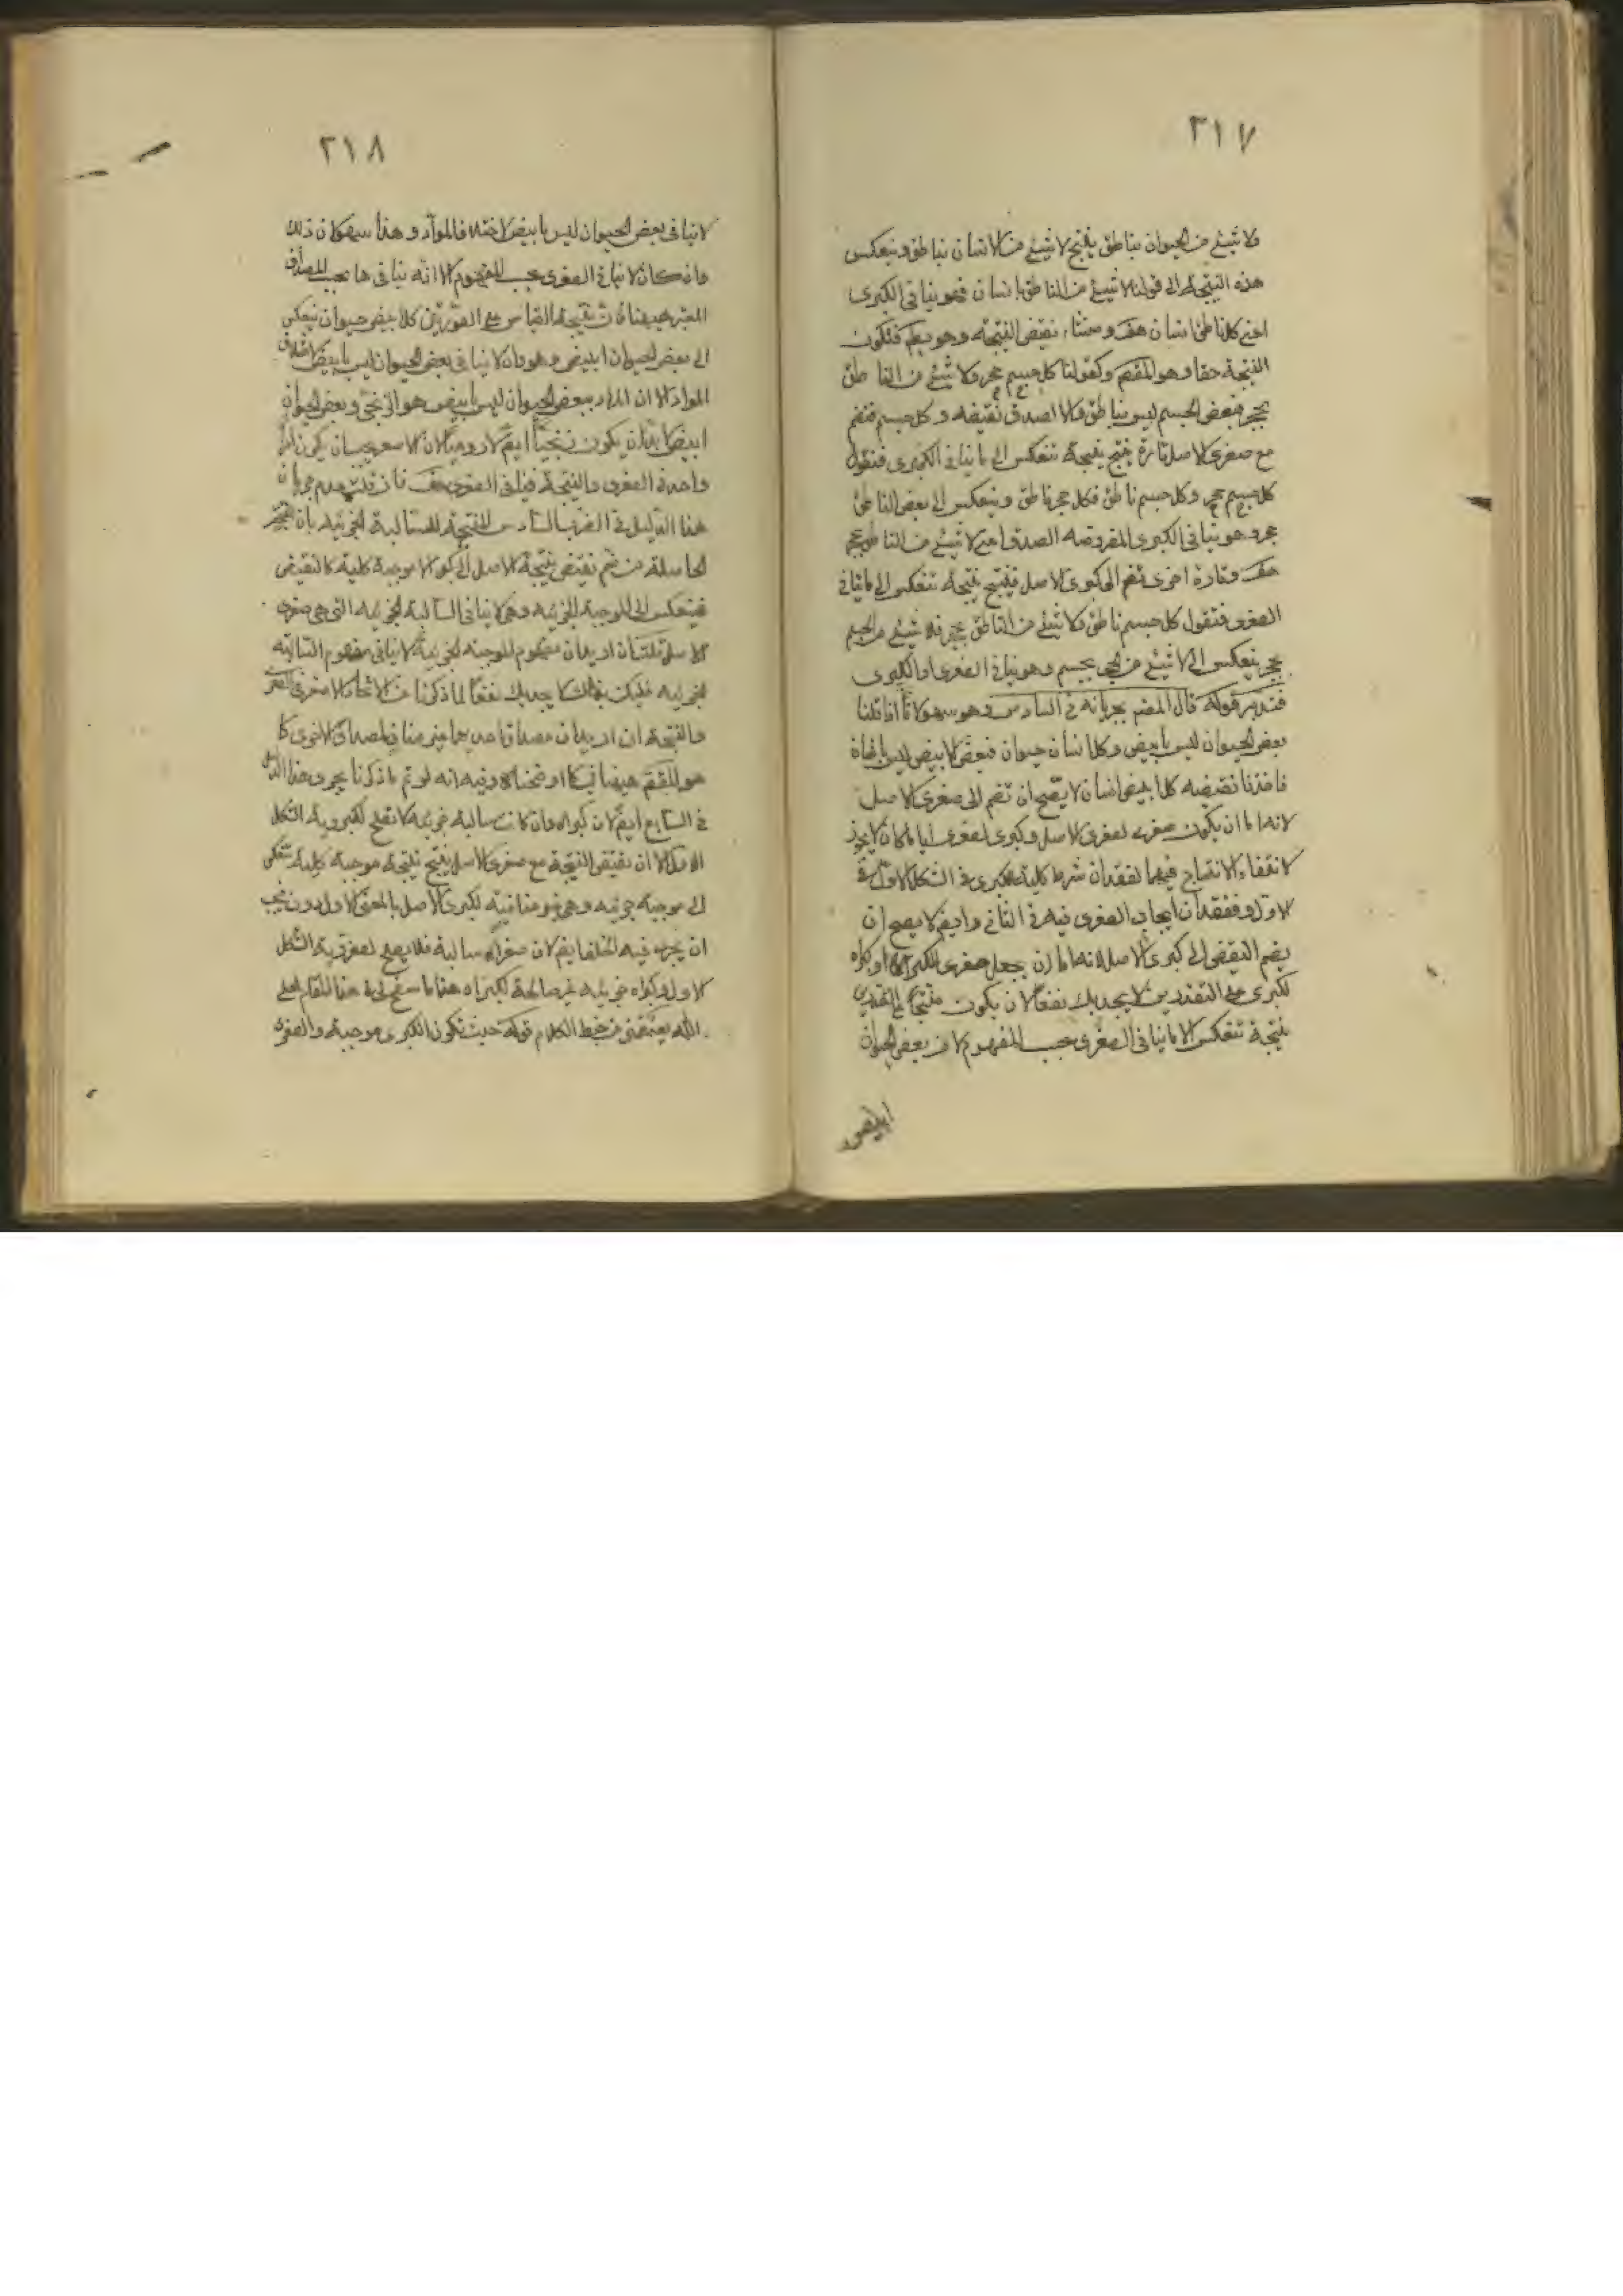 ٣١٧
ولا شيئ من الحيوان بناطق ينتج لا شيئ من الانسان بناطق وينعكس
هذه النتيجة الى قولنا لا شيئ من الناطق بانسان فهو ينافى الكبرى
اعنى كل ناطق انسان هف ومنشاء نقيض النتيجة وهو بط فتكون
النتيجة حقا وهو المقصم وكقولنا كل جسم حجر ولا شيئ من الناطق
بحجر فبعض الجسم ليس بناطق والا لصدق نقيضه وكل جسم فنضم
مع صغرى الاصل تارة ينتج نتيجة تنعكس الى ما ينافى الكبرى فنقول
كل جسم حجر وكل جسم ناطق فكل حجر ناطق وينعكس الى بعض الناطق
حجر وهو ينافى الكبرى المفروضه الصدق اعنى لا شيئ من الناطق بحجر
هف وتارة اخرى تضم الى كبرى الاصل فينتج نتيجة تنعكس الى ما ينافى
الصغرى فتقول كل جسم ناطق ولا شيئ من الناطق بحجر فلا شيئ من الجسم
بحجر ينعكس الى لا شيئ من الحجر بجسم وهو ينافى الصغرى او الكبرى
فتدبر قوله قال المصنم بجريانه فى السادس وهو سهو لانا اذا قلنا
بعض الحيوان ليس بابيض وكل انسان حيوان فبعض الابيض ليس بانسان
فاخذنا نقيضه كل ابيض انسان لا يصح ان تضم الى صغرى الاصل
لانه اما ان يكون صغرى لصغرى الاصل وكبرى لصغرى ايا ما كان لا يجوز
لانتفاء الانتاج فيهما لفقدان شرط كلية الكبرى فى الشكل الاول فى
الاول وفقدان ايجاب الصغرى فيه فى الثانى وايضم لا يصح ان
يضم النقيض الى كبرى الاصل لانه اما ان يجعل صغرى لكبراه او كبراه
لكبرى على التقديرين لا يجديك نفعا لان يكون منتجا على التقديرين
نتيجة تنعكس الا ما ينافى الصغرى بحسب المفهوم لان بعض الحيوان
ابيض
٣١٨
لا ينافى بعض الحيوان ليس بابيض لاختلاف المواد وهذا سهو لان ذلك
وان كان لا ينافى الصغرى بحسب المفهوم الا انه ينافى ها بحسب المصداق
المعتبر هيهنا فان نتيجة القياس على الصورتين كل ابيض حيوان ينعكس
الى بعض الحيوان ابيض وهو وان لا ينافى بعض الحيوان ليس بابيض لاختلاف
المواد الا ان المراد ببعض الحيوان ليس بابيض هو الزنجى وبعض الحيوان
ابيض لا بد ان يكون زنجيا ايضم لا روميا لان الاصغر يجب ان يكون ذاتا
واحدة فى الصغرى والنتيجة فينافى الصغرى هف فان قلت عدم جريان
هذا الدليل فى الضرب السادس المنتجة للسالبة الجزئيه بان النتيجة
الحاصلة من ضم نقيض نتيجة الاصل الى كبرى الاموجبة كلية كالنقيض
فينعكس الى الموجبة الجزئيه وهى لا ينافى السالبة الجزئيه التى هى صغرى
الاصل قلت ان اريد ان مفهوم الموجبة الجزئية لا ينافى مفهوم السالبة
الجزئيه فليكن ذلك لا يجديك نفعا لما ذكرنا من الاتحاد الاصغر فى الصغرى
والنتيجة ان اريد ان مصداق احديهما غير مناف لمصداق الاخرى كا
هو المقصم هيهنا فيه كا اوضحناه وفيه انه لو تم ما ذكرنا يجرى هذا الدليل
فى السابع ايضم لان كبراه وان كانت سالبه جزئيه لا تصلح لكبروية الشكل
الاول الا ان نقيض النتيجة مع صغرى الاصل ينتج نتيجة موجبة كلية تنعكس
الى موجبة جزئيه وهى هو منافية لكبرى الاصل بالمعنى الاول دون يجب
ان يجرى فيه الخلف ايضم لان صغراه سالبة فلا يصلح لصغروية الشكل
الاول وكبراه جزئيه غير صالحة لكبراه هذا ما سنح لى فى هذا المقام لعلى
الله يعصمنى من خبط الكلام قوله حيث تكون الكبرى موجبة والصغرى